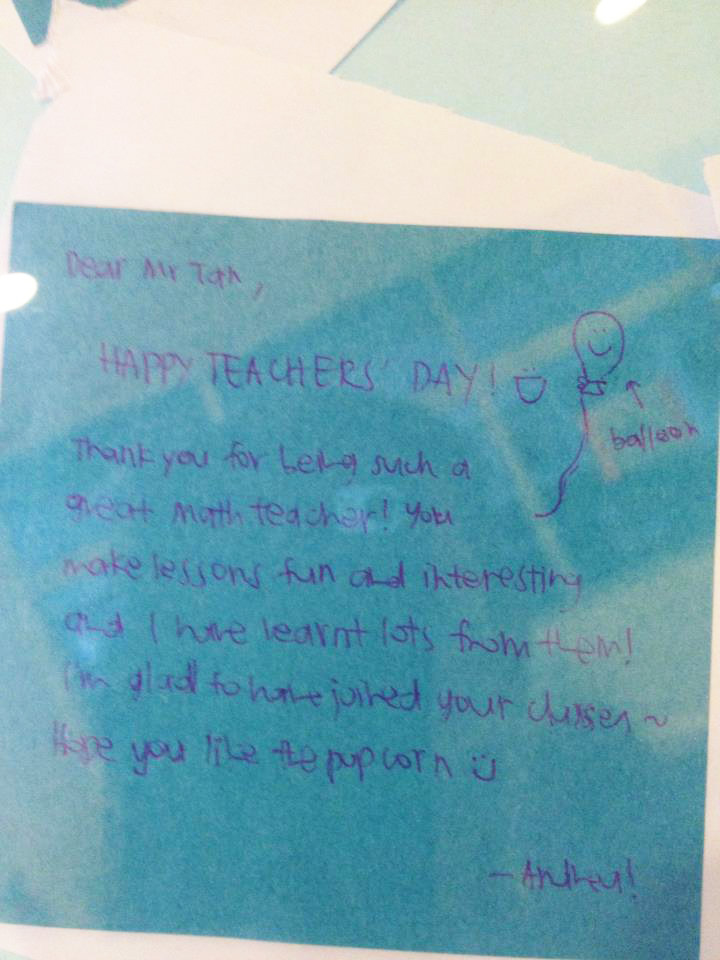 Dear Mr Tan,
HAPPY TEACHERS' DAY!
balloon
Thank you for being such a
great math teacher! You
make lessons fun and interesting
and I have learnt lots from them!
I'm glad to have joined your classes~
Hope you like the popcorn